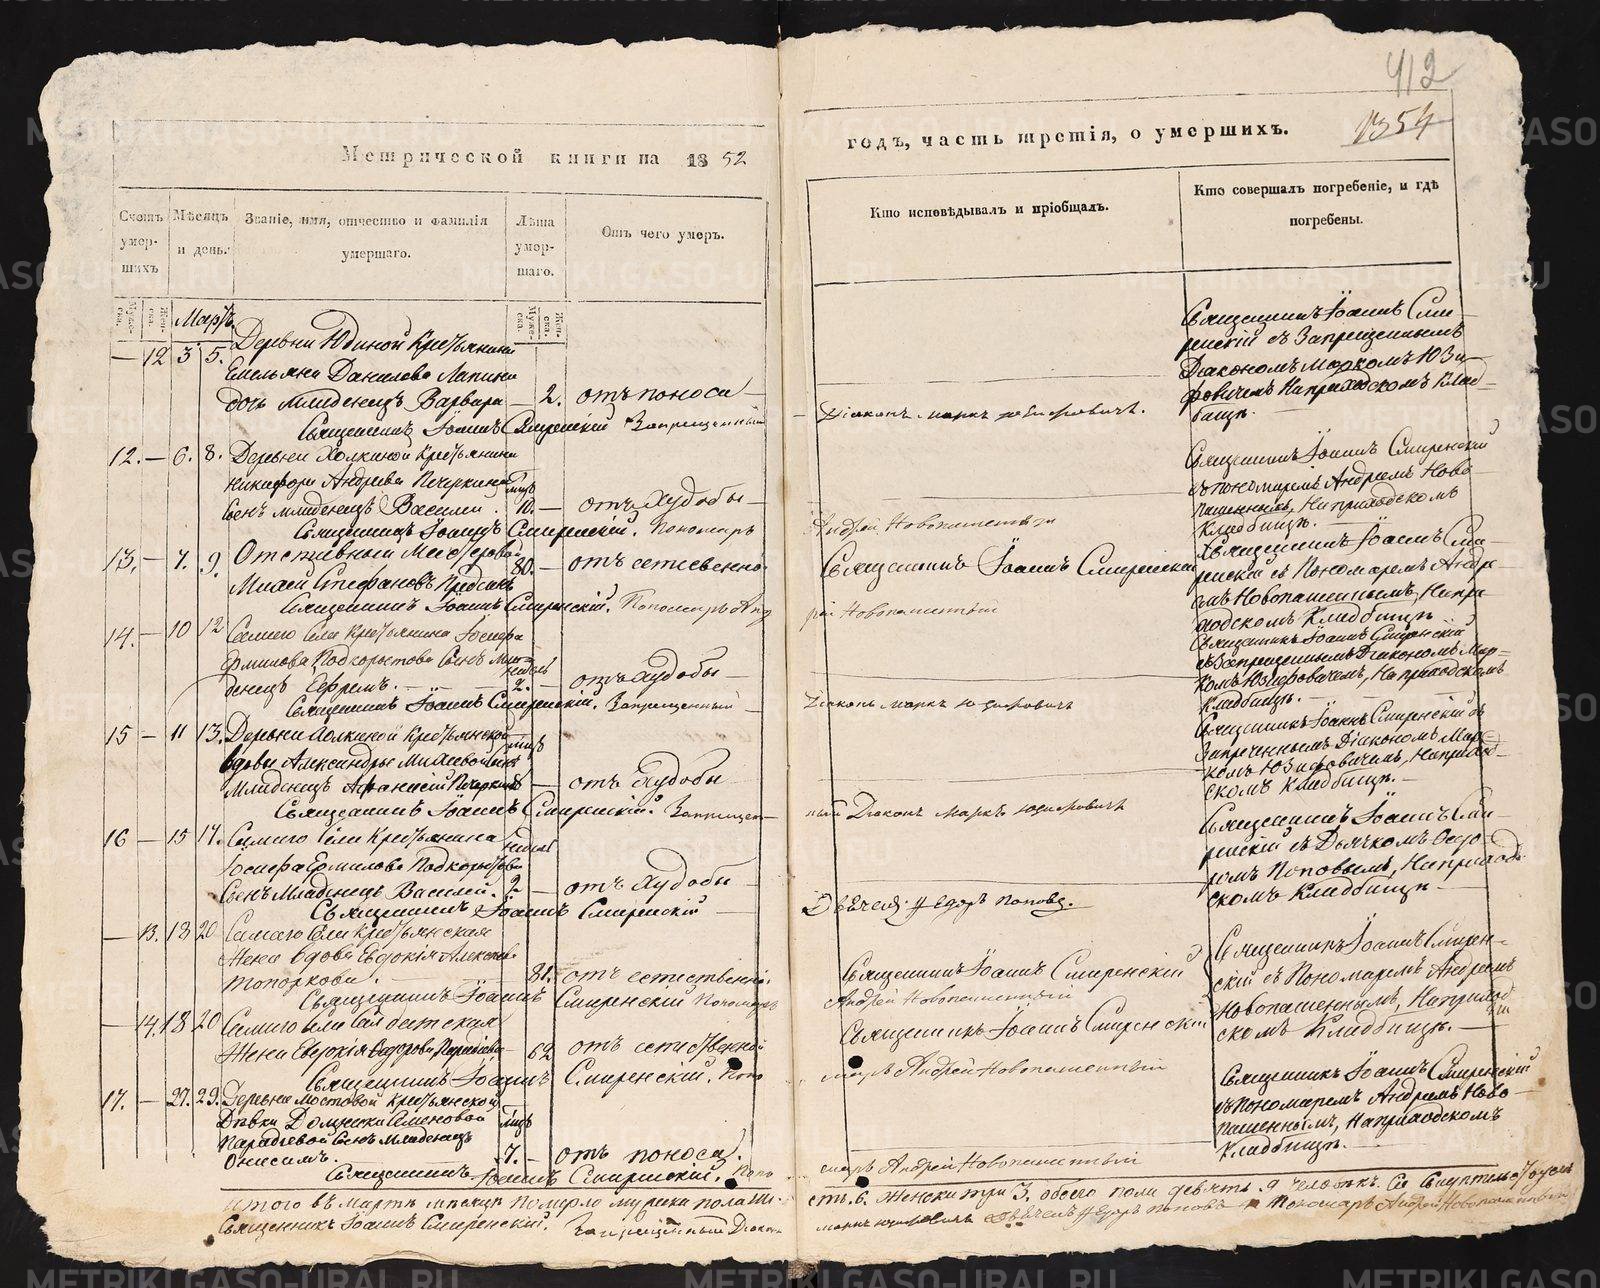 412
1354
Метрической книги на 1852
годъ, часть третія, о умершихъ.
Счетъ умер-шихъ
Мѣсяцъ и день.
Званіе, имя, отчество и фамилія умершаго.
Лѣта умер-шаго.
Отъ чего умеръ.
Кто исповѣдывалъ и пріобщалъ.
Кто совершалъ погребеніе, и гдѣ погребены.
Мартъ
— 12 3 5. Деревни Юдиной Крестьянина
Емельяна Данилова Лапина
дочь младенецъ Варвара — 2. отъ поноса
Священникъ Іоаннъ Смиренскій Запрещенный
Діаконъ Маркъ
Священникъ Іоаннъ Сми-
ренскій съ Запрещеннымъ
Діакономъ Маркомъ Юзи-
фовичемъ На приходскомъ Клад-
бищѣ.
12. — 6. 8. Деревни Холкиной Крестьянина
Никифора Андреева Печеркина
Сынъ младенецъ Василій. 10. — отъ худобы
Священникъ Іоаннъ Смиренскій. Пономарь
Андрей Новопашенный
Священникъ Іоаннъ Смиренскій
съ пономаремъ Андреемъ Ново-
пашеннымъ, На приходскомъ
Кладбищѣ.
13. — 7. 9. Отставный Мастеровой
Михей Стефановъ
80. — отъ естественной
Священникъ Іоаннъ Смиренскій. Пономарь Анд
рей Новопашенный
Священникъ Іоаннъ Смиренскій
Священникъ Іоаннъ Сми-
ренскій съ Пономаремъ Андре-
емъ Новопашеннымъ, На при-
ходскомъ Кладбищѣ
14. — 10 12 Самаго села Крестьянина Іосифа
Ермилова Подкорытова Сынъ Мла-
денецъ Ефремъ. недель 2. — отъ худобы
Священникъ Іоаннъ Смиренскій. Запрещенный
Діаконъ Маркъ Юзифовичъ
Священникъ Іоаннъ Смиренскій
съ Запрещеннымъ Діакономъ Мар-
комъ Юзифовичемъ, На приходскомъ
Кладбищѣ.
15 — 11 13. Деревни Холкиной Крестьянской
вдовы Александры Михеевой сынъ
Младенецъ Афанасій — отъ худобы
Священникъ Іоаннъ Смиренскій. Запрещен-
ный Діаконъ Маркъ Юзифовичъ
Священникъ Іоаннъ Смиренскій съ
Запрещеннымъ Діакономъ Мар-
комъ Юзифовичемъ, На приход-
скомъ Кладбищѣ.
16 — 15 17. Самаго села Крестьянина
Іосифа Ермилова Подкорытова
Сынъ Младенецъ Василій. недель 2. — отъ худобы
Священникъ Іоаннъ Смиренскій
Дьячекъ Федоръ Поповъ.
Священникъ Іоаннъ Сми-
ренскій съ Дьячкомъ Федо-
ромъ Поповымъ, На приход-
скомъ Кладбищѣ
— 13. 18 20 Самаго села Крестьянская
Жена вдова Евдокія Алексѣева
Топоркова. 81. отъ естественной
Священникъ Іоаннъ Смиренскій Пономарь
Андрей Новопашенный
Священникъ Іоаннъ Смиренскій
Священникъ Іоаннъ Смирен-
скій съ Пономаремъ Андреемъ
Новопашеннымъ, На приход-
скомъ Кладбищѣ.
— 14. 18 20 Самаго села Салдатская
Жена Евдокія Федорова 62 отъ естественной
Священникъ Іоаннъ Смиренскій. Поно
марь Андрей Новопашенный
Священникъ Іоаннъ Смиренскій
17. — 27. 29. Деревни Мостовой Крестьянской
Дѣвки Домники Семеновой
Сынъ Младенецъ
Онисимъ. 7. — отъ поноса.
Священникъ Іоаннъ Смиренскій. Поно
марь Андрей Новопашенный
Священникъ Іоаннъ Смиренскій
съ Пономаремъ Андреемъ Ново-
пашеннымъ, На приходскомъ
Кладбищѣ.
Итого въ мартѣ мѣсяцѣ померло мужеска пола ше-
сть 6. Женска три 3. обоего пола девять 9 человѣкъ.
Священникъ Іоаннъ Смиренскій. Запрещенный Діаконъ
Маркъ Юзифовичъ Дьячекъ Федоръ Поповъ Пономарь Андрей Новопашенный
METRIKI.GASO-URAL.RU